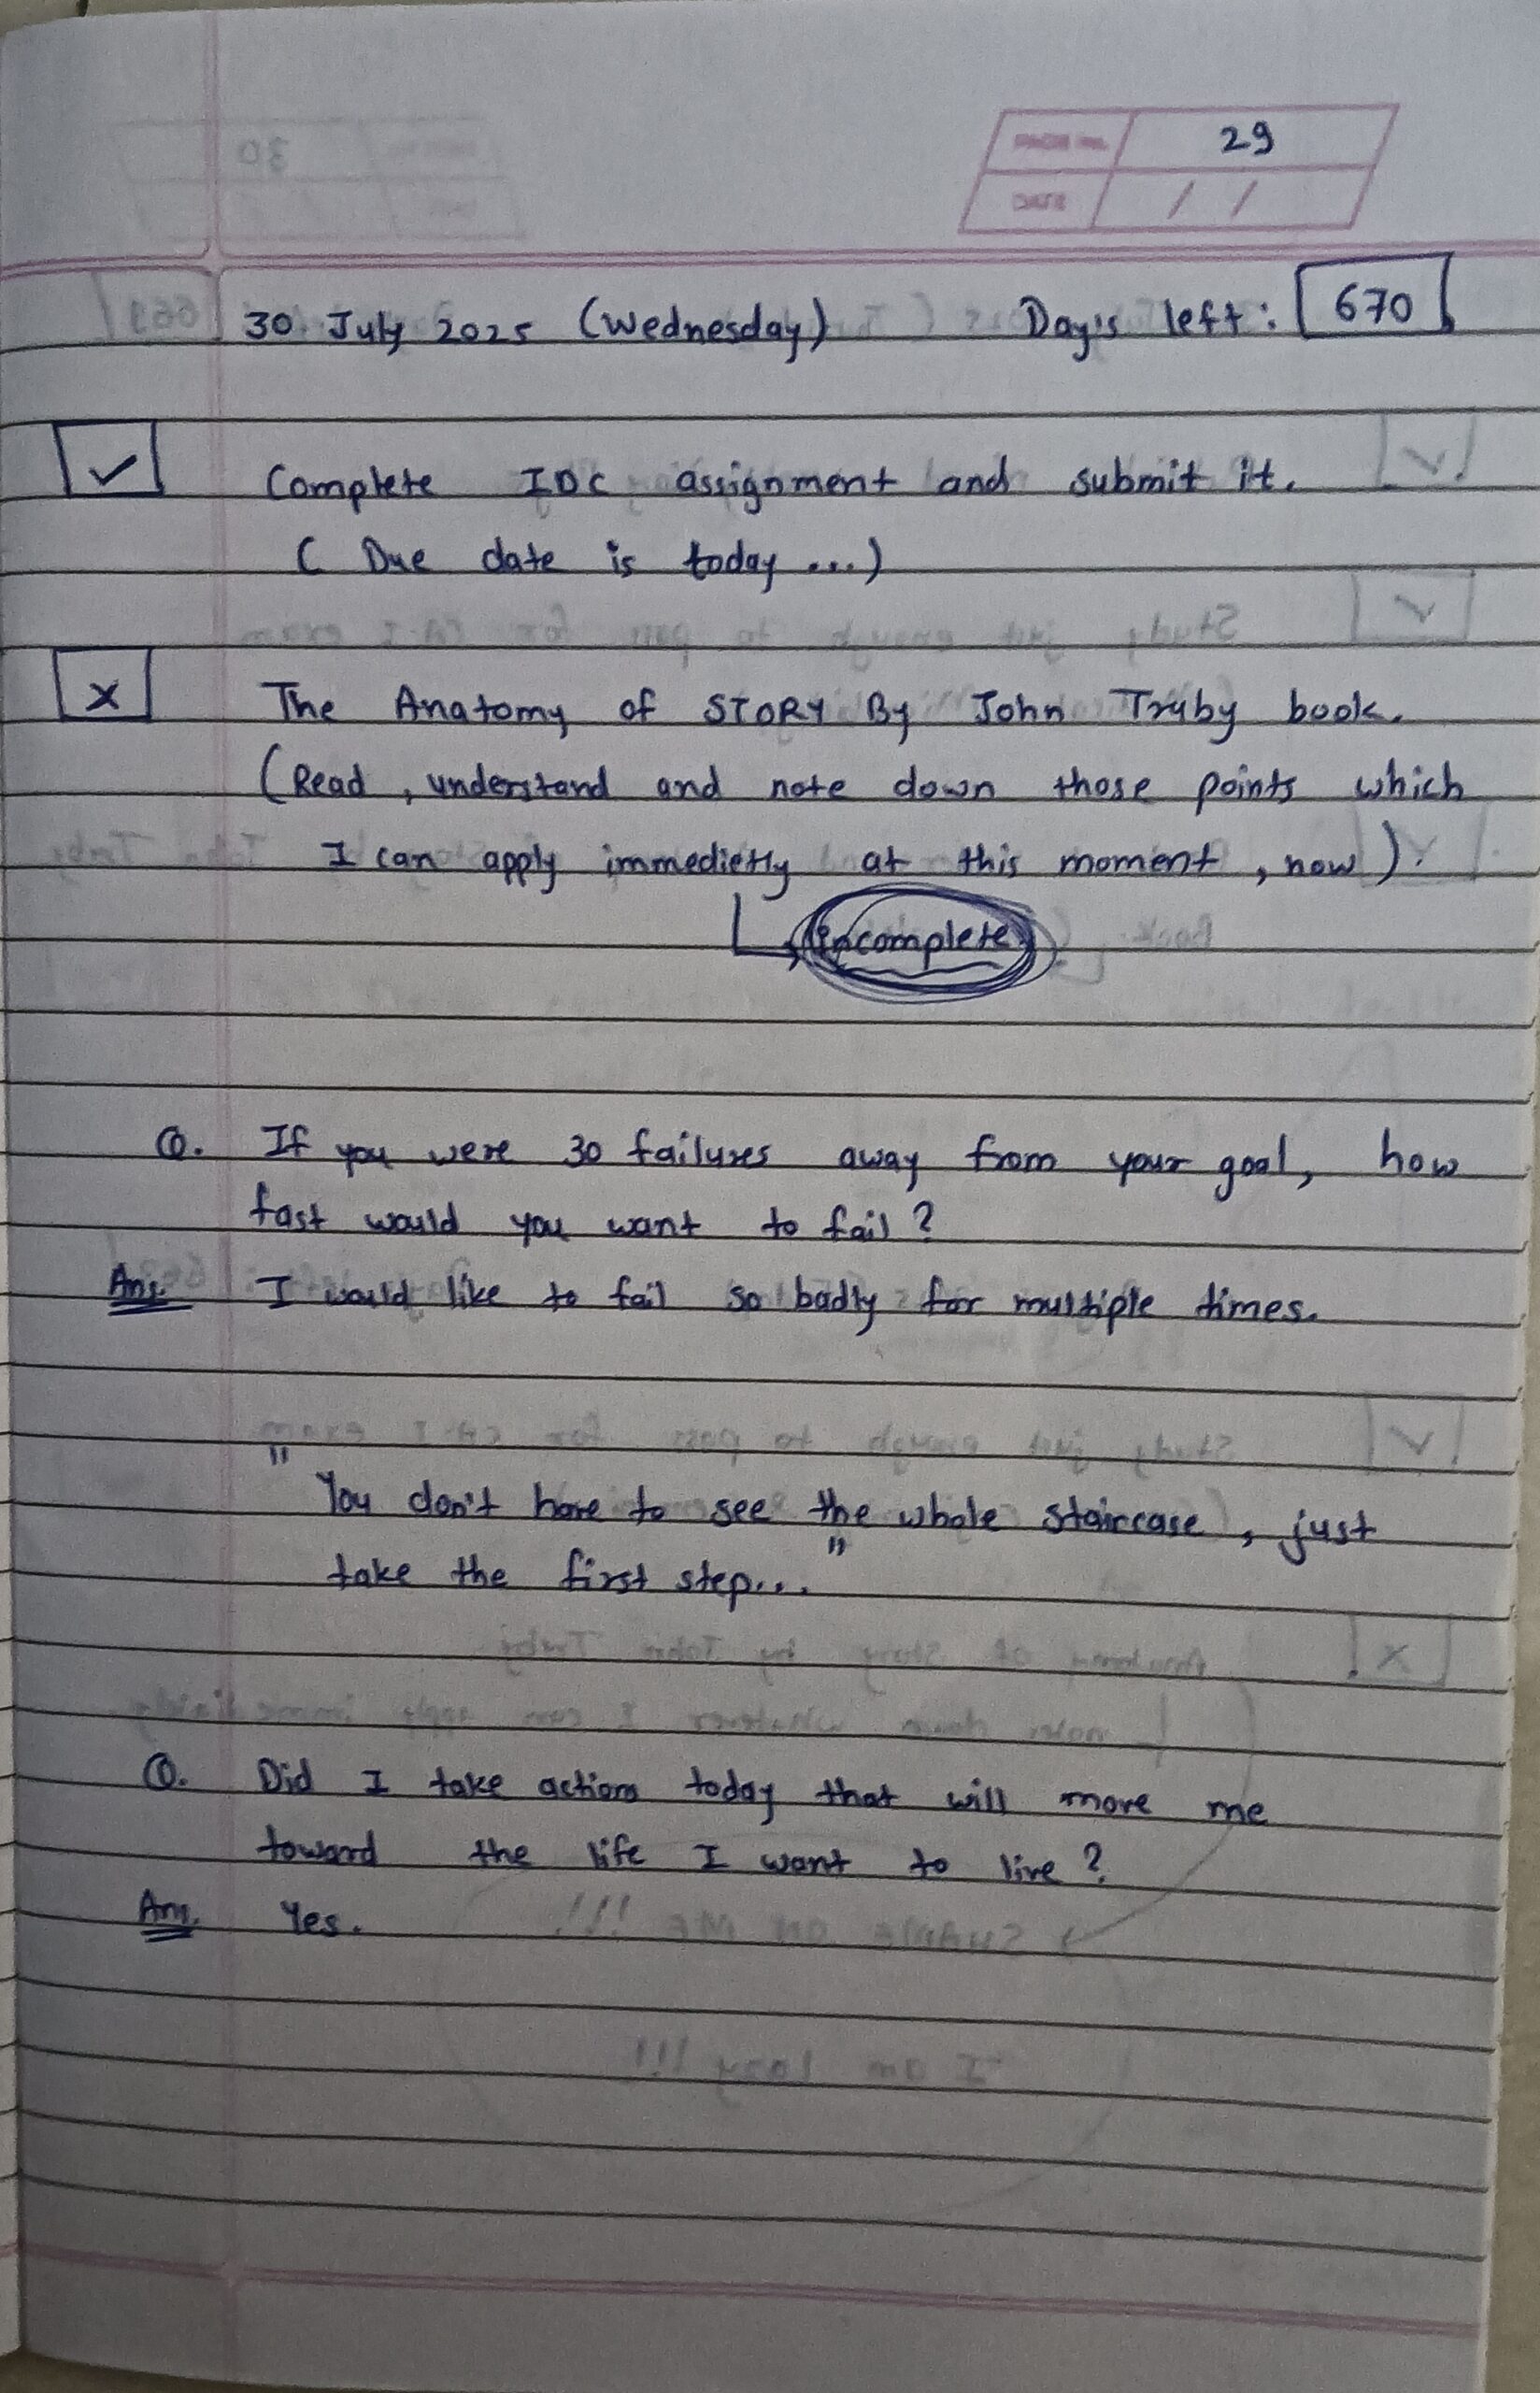 29
30 July 2025 (Wednesday) Day's left: 670
Complete IDC assignment and submit it.
( Due date is today ...)
x The Anatomy of STORY By John Truby book.
(Read, understand and note down those points which
I can apply immedietly at this moment, now).
incomplete
Q. If you were 30 failures away from your goal, how
fast would you want to fail?
Ans. I would like to fail so badly for multiple times.
"You don't have to see the whole staircase, just
take the first step..."
Q. Did I take actions today that will move me
toward the life I want to live?
Ans. Yes.